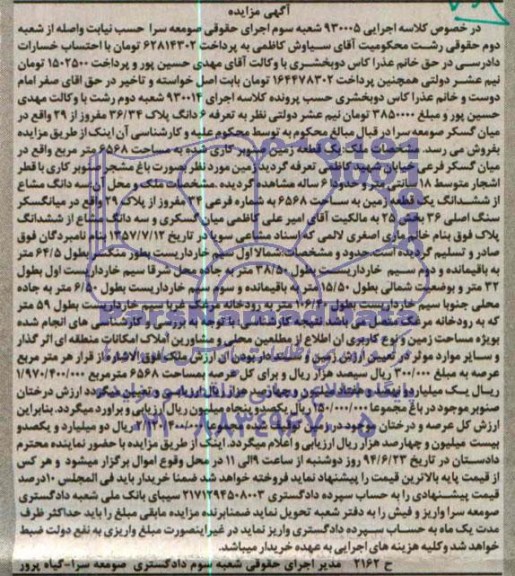 آگهی مزایده
در خصوص کلاسه اجرایی ۹۳۰۰۰۵ شعبه سوم اجرای حقوقی صومعه سرا حسب نیابت واصله از شعبه
دوم حقوقی رشت محکومیت آقای سیاوش کاظمی به پرداخت ۶۲۸۱۴۳۰۲ تومان با احتساب خسارات
دادرسی در حق خانم عذرا کاس دوبخشری با وکالت آقای مهدی حسین پور و پرداخت ۱۵۰۲۵۰۰ تومان
نیم عشر دولتی همچنین پرداخت ۱۶۴۴۷۸۳۰۲ تومان بابت اصل خواسته و تاخیر در حق اقای صفر امام
دوست و خانم عذرا کاس دوبخشری حسب پرونده کلاسه اجرای ۹۳۰۰۱۴ شعبه دوم رشت با وکالت مهدی
حسین پور و مبلغ ۳۸۵۰۰۰۰ تومان نیم عشر دولتی نظر به تعرفه ۶ دانگ پلاک ۳۶/۳۴ مفروز از ۲۹ واقع در
میان گسکر صومعه سرا در قبال مبالغ محکوم به توسط محکوم علیه و کارشناسی آن اینک از طریق مزایده
بفروش می رسد. مشخصات ملک: یک قطعه زمین صنوبر کاری شده به مساحت ۶۵۶۸ متر مربع واقع در
میان گسکر فرعی خیابان شهید کاظمی تعرفه گردید زمین مورد نظر بصورت باغ مشجر صنوبر کاری با قطر
اشجار متوسط ۱۸ سانتی متر و حدودا ۶ ساله مشاهده گردیده. مشخصات ملک و محل آن سه دانگ مشاع
از ششدانگ یک قطعه زمین به مساحت ۶۵۶۸ به شماره فرعی ۳۴ مفروز از پلاک ۲۹ واقع در میانگسکر
سنگ اصلی ۳۶ بخش ۲۵ به مالکیت آقای امیر علی کاظمی میان گسکری و سه دانگ مشاع از ششدانگ
پلاک فوق بنام خانم ماری اصغری لالمی که اسناد مشاعی سویا در تاریخ ۱۳۵۷/۷/۱۲ بنام نامبردگان فوق
صادر و تسلیم گردیده است حدود و مشخصات: شمالا اول سیم خارداریست بطور منکسر بطول ۶۴/۵ متر
به باقیمانده و دوم سیم خارداریست بطول ۳۸/۵۰ متر به جاده محل شرقا سیم خارداریست اول بطول
۳۲ متر و بوضعیت شمالی بطول ۱۵/۵۰ به باقیمانده و سوم سیم خارداریست بطول ۶/۵۰ متر به جاده
محلی جنوبا سیم خارداریست بطول ۱۰۶/۴۰ متر به رودخانه مرغک غربا سیم خارداریست بطول ۵۹ متر
که به رودخانه مرغک متصل می باشد نتیجه کارشناسی: با توجه به بررسی و کارشناسی های انجام شده
بویژه مساحت زمین و نوع کاربری ان اطلاع از مطلعین محلی و مشاورین املاک امکانات منطقه ای اثر گذار
و سایر موارد موثر در تعیین ارزش زمین و سند دار بودن آن ارزش ملک فوق الاشاره از قرار هر متر مربع
عرصه به مبلغ ۳۰۰/۰۰۰ ریال سیصد هزار ریال و برای کل عرصه به مساحت ۶۵۶۸ مترمربع ۱/۹۷۰/۴۰۰/۰۰۰
ریال یک میلیارد و نهصد و هفتاد میلیون و چهارصد هزار ریال ارزیابی و تعیین میگردد ارزش درختان
صنوبر موجود در باغ مجموعا ۱۵۰/۰۰۰/۰۰۰ ریال یکصد و پنجاه میلیون ریال ارزیابی و براورد میگردد. بنابراین
ارزش کل عرصه و درختان موجود در زمین کارشناسی شده مجموعا ۲/۱۲۰/۴۰۰/۰۰۰ ریال دو میلیارد و یکصدو
بیست میلیون و چهارصد هزار ریال ارزیابی و اعلام میگردد. اینک از طریق مزایده با حضور نماینده محترم
دادستان در تاریخ ۹۴/۶/۲۳ روز دوشنبه از ساعت ۹ الی ۱۱ در محل وقوع اموال برگزار میشود و هر کس
از قیمت پایه بالاترین قیمت را پیشنهاد نماید فروخته خواهد شد ضمنا خریدار باید فی المجلس ۱۰درصد
قیمت پیشنهادی را به حساب سپرده دادگستری ۲۱۷۱۲۹۴۵۰۸۰۰۳ سیبای بانک ملی شعبه دادگستری
صومعه سرا واریز و فیش را به دفتر شعبه تحویل نماید ضمنابرنده مزایده مابقی مبلغ را باید حداکثر ظرف
مدت یک ماه به حساب سپرده دادگستری واریز نماید در غیر اینصورت مبلغ واریزی به نفع دولت ضبط
خواهد شد وکلیه هزینه های اجرایی به عهده خریدار میباشد.
ح ۲۱۶۲ مدیر اجرای حقوقی شعبه سوم دادگستری صومعه سرا-گیاه پرور